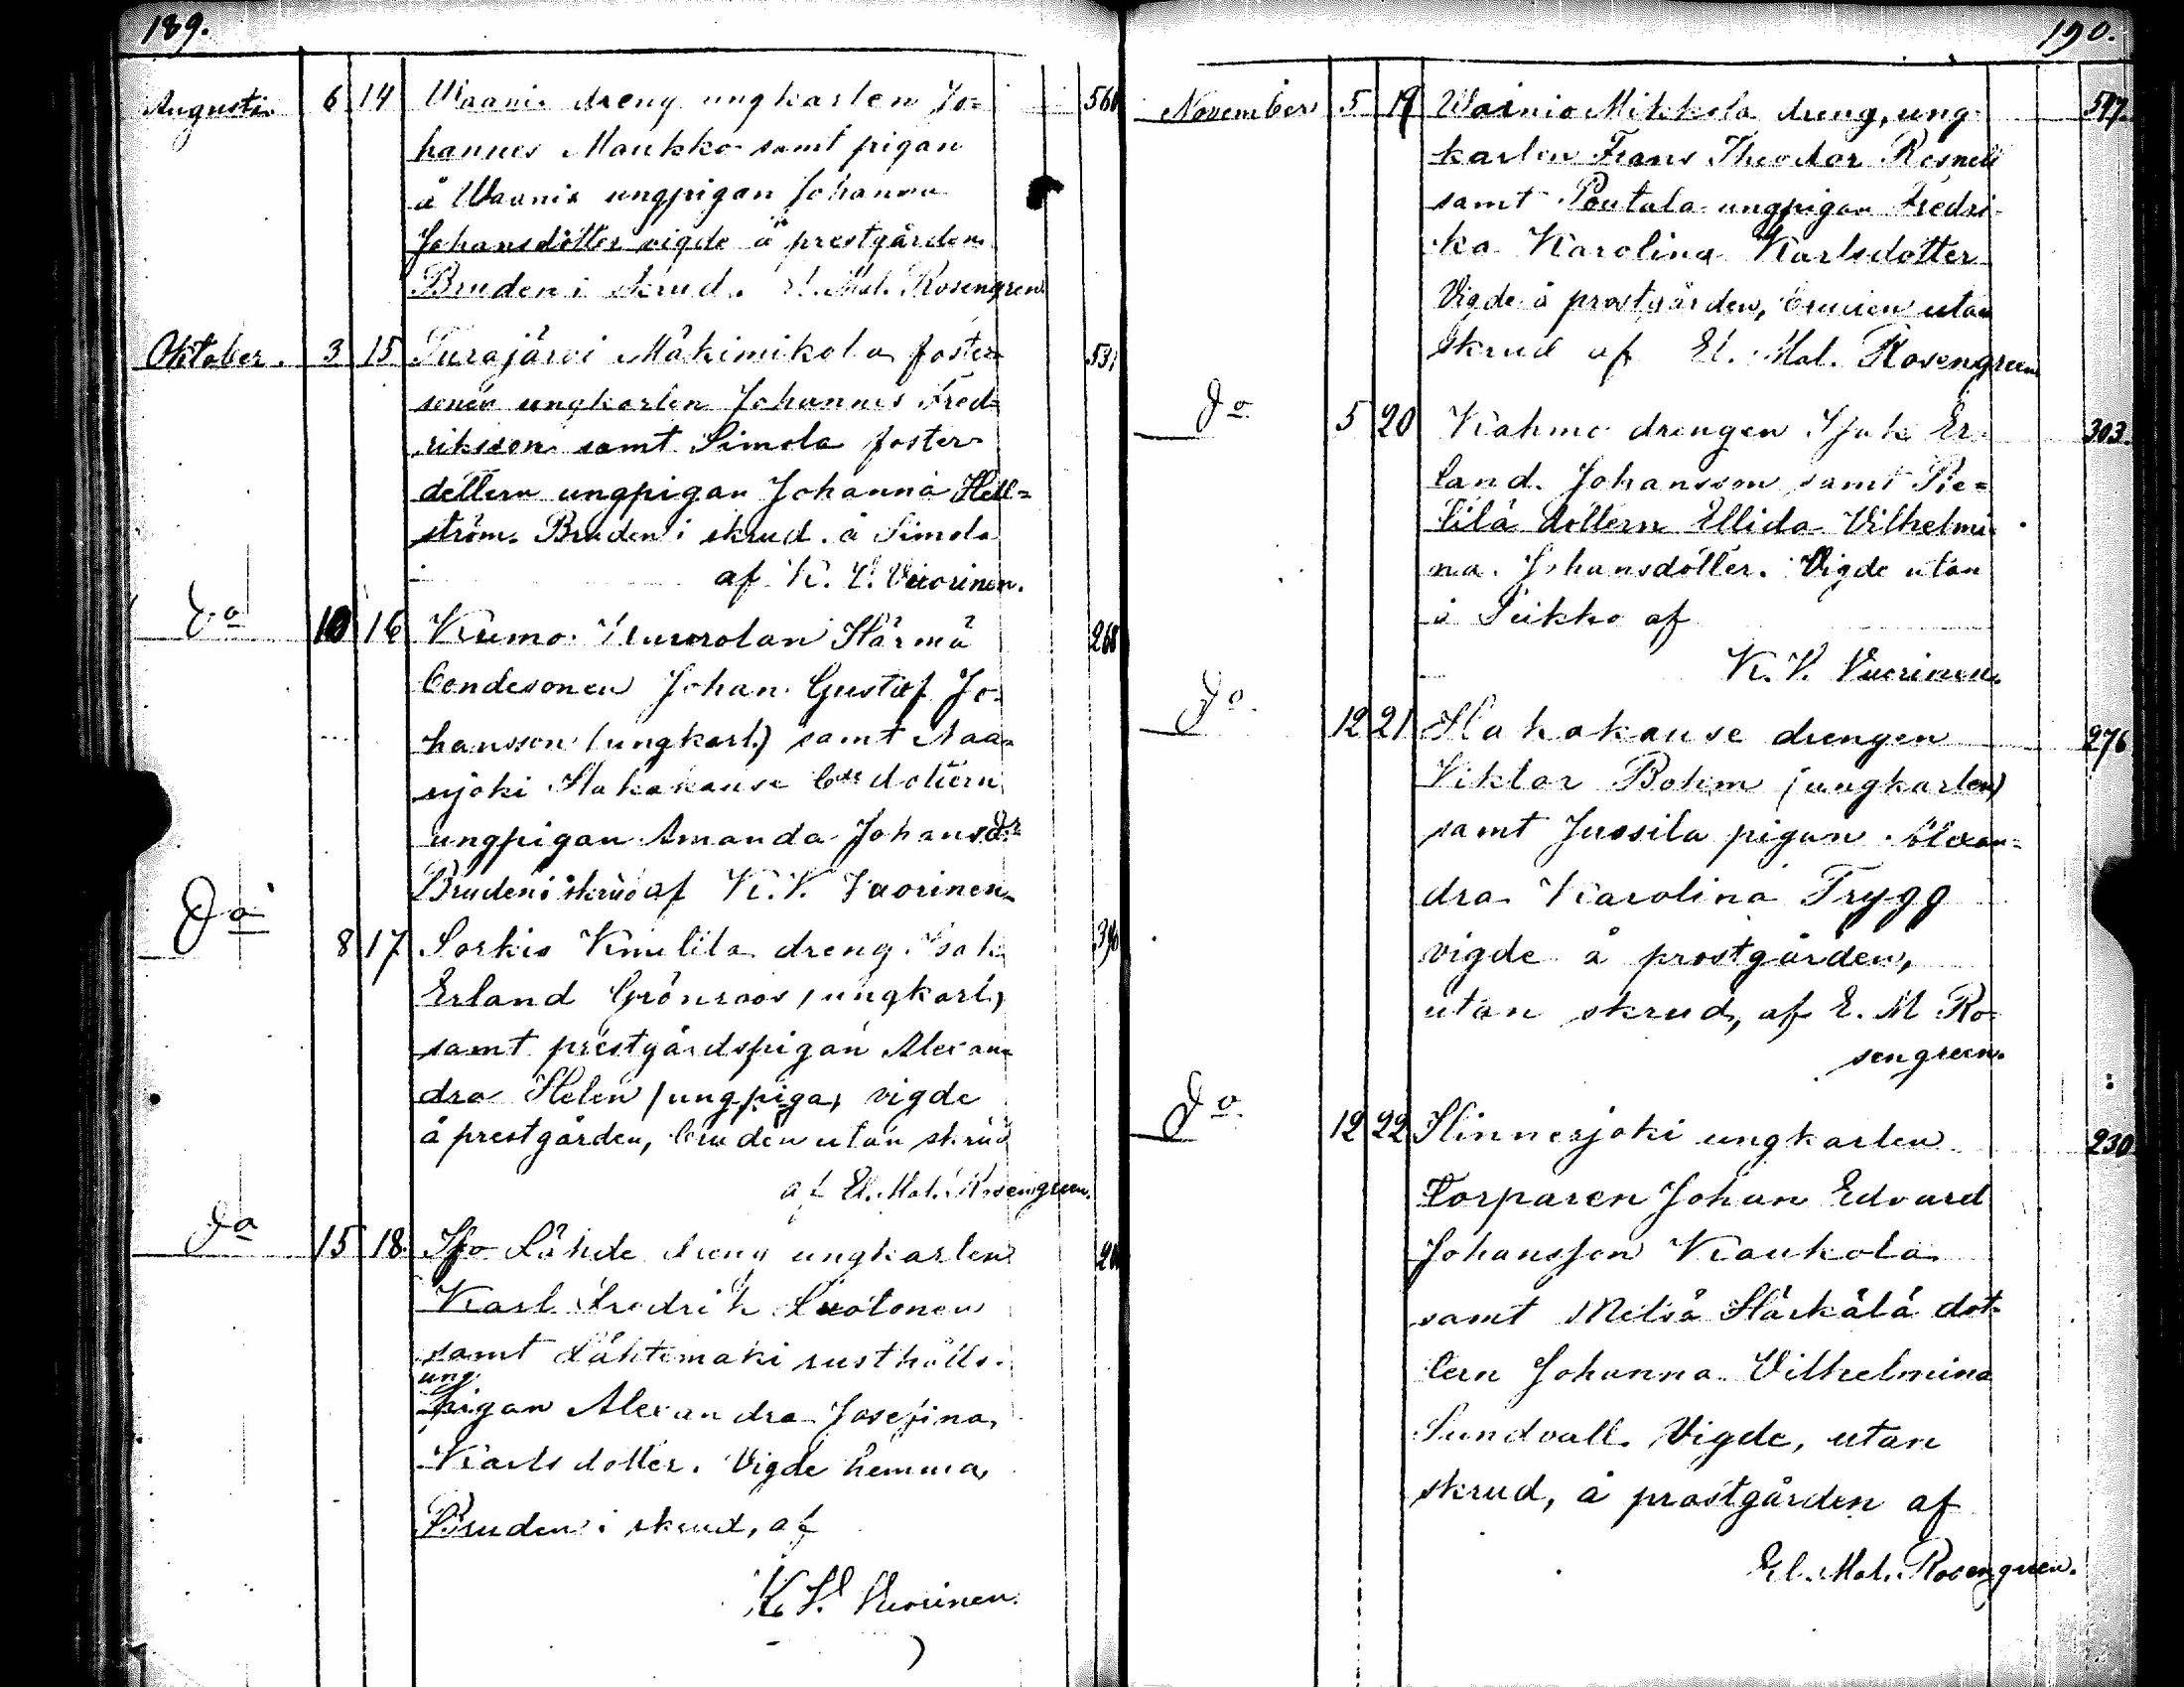 189.
Augusti. 6 14 Waanis dreng ungkarlen Jo= 560
hannes Maukko samt pigan
å Waanis ungpigan Johanna
Johansdotter vigde å prestgården
Bruden i skrud. El. Mal. Rosengren
Oktober. 3 15 Turajärvi Mäkimikola foster= 531
sonen ungkarlen Johannes Fred=
riksson samt Simola foster=
dottern ungpigan Johanna Hell=
ström. Bruden i skrud. å Simola
af K. V. Vuorinen.
Do 10 16 Kiimo Härmä 268
bondesonen Johan Gustaf Jo=
hansson (ungkarl.) samt Naa=
rjoki Hahakause bde dottern
ungpigan Amanda Johansdr
Bruden i skrud af K. V. Vuorinen.
Do 8 17 Sorkis dreng Isak
Erland Grönroos (ungkarl)
samt prestgårdspigan Alexan=
dra Helen (ungpiga) vigde
å prestgården, bruden utan skrud
af El. Mal. Rosengren.
Do 15 18. Lähde dreng ungkarlen
Karl Fredrik Luotonen
samt Lähtemäki rusthålls=
ung
pigan Alexandra Josefina
Karlsdotter. Vigde hemma,
Bruden i skrud, af
K. V. Vuorinen.
190.
November 5 19 Wainio Mikkola dreng, ung= 517.
karlen Frans Theodor Rosnell
samt Poutala ungpigan Fredri=
ka Karolina Karlsdotter
Vigde å prostgården, bruden utan
skrud af El. Mal. Rosengreen
Do 5 20 Kahmo drengen Isak Er= 303.
land Johansson samt Re=
tilä dottern Ellida Vilhelmi=
na Johansdotter. Vigde utan
å Siikko af
K. V. Vuorinen.
Do. 12 21 Hahakause drengen 276
Viktor Bohm (ungkarlen)
samt Jussila pigan Alexan=
dra Karolina Trygg
vigde å prostgården,
utan skrud, af E. M Ro=
sengreen.
Do. 12 22 Hinnerjoki ungkarlen 230
Torparen Johan Edvard
Johansson Kaukola
samt Metsä Härkälä dot=
tern Johanna Vilhelmina
Sundvall. Vigde, utan
skrud, å prostgården af
El. Mal. Rosengreen.